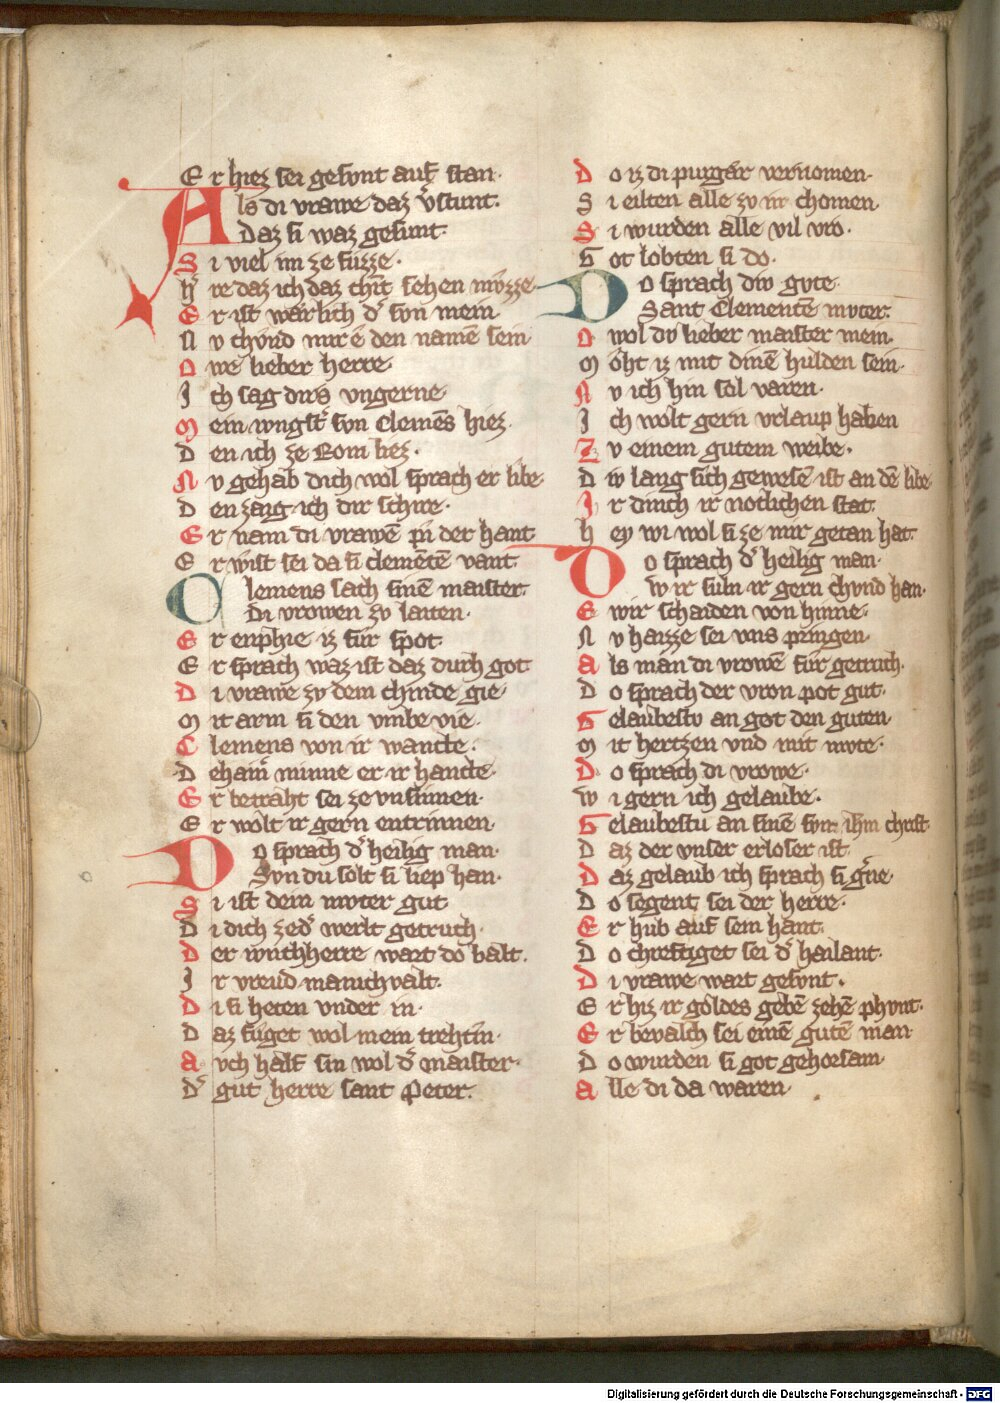 Er hiez sei gesvnt auf stan·
Als di vrawe daz v̾stunt·
Daz si waz gesunt·
Si viel im ze fuͤzze·
h̾re daz ich daz chīt sehen mvͤzze·
Er ist waͤrlich d̾ svn mein
Nv chvnd mir ē den namē sein
Owe lieber herre·
Ich sag dirs vngerne·
Mein ivngst̾ svn Clemēs hiez·
Den ich ze Rom liez·
Nv gehab dich wol sprach er libe·
Den zaig ich dir schire·
Er nam di vrawē pi der hant
Er wist sei da si clemētē vant·
Clemens sach sinē maister·
Di vrowen zv laiten·
Er enphie iz fuͤr spot·
Er sprach waz ist daz durch got
Di vrawe zv dem chinde gie·
Mit arm si den vmbe vie·
Clemens von ir wancte·
Dehain̾ minne er ir hancte·
Er betraht sei ze vnsinnen·
Er wolt ir gern entrinnen·
Do sprach d̾ heilig man·
Svn du solt si liep han·
Si ist dein mvter gut
Di dich zed̾ werlt getruch·
Der ivnchherre wart do balt·
Ir vreud manichvalt·
Di si heten vnder in·
Daz fuͤget wol mein trehtin·
Avch half sin wol d̾ maister·
D̾ gut herre sant Peter·
Do iz di purgaͤr vernomen·
Si eilten alle zv ir chomen
Si wurden alle vil vro·
Got lobten si do·
Do sprach div gvte·
Sant Clementē mvter·
Owol dv lieber maister mein·
Moͤht iz mit dinē hulden sein·
Nv ich hin sol varen·
Ich wolt gern vrlaup haben
Zv einem gutem weibe·
Div lang sich gewesē ist an dē libe·
Ir dinch ir notlichen stat·
hey wi wol si ze mir getan hat·
Do sprach d̾ heilig man·
Wir suln ir gern chvnd han·
E wir schaiden von hinne·
Nv haizze sei vns pringen·
Als man di vrowē fuͤr getruch·
Do sprach der vron pot gut·
Gelaubestv an got den guten
Mit hertzen vnd mit mvte·
Do sprach di vrowe·
Wi gern ich gelaube·
Gelaubestu an sinē svn ihm christ
Daz der vnser erloser ist·
Daz gelaub ich sprach si g̾ne·
Do segent sei der herre·
Er hub auf sein hant·
Do chreftiget sei d̾ hailant·
Di vrawe wart gesvnt·
Er hiz ir goldes gebē zehē phvnt·
Er bevalch sei einē gutē man·
Do wurden si got gehorsam·
Alle di da waren·
Digitalisierung gefördert durch die Deutsche Forschungsgemeinschaft - DFG